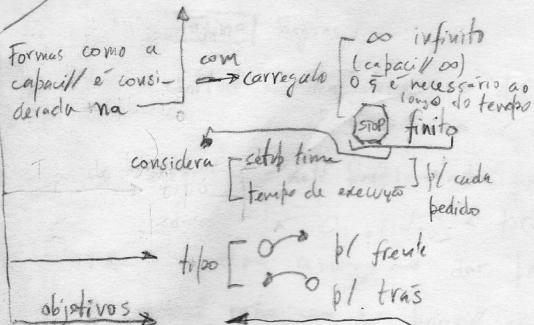 Formas como a
capaci// é consi-
derada na
com
carregalo
∞ infinito
(capaci// ∞)
O q̃ é necessário ao
longo do tempo
STOP finito
considera
setup time
tempo de execução
p/ cada
pedido
tipo
p/ frente
p/ trás
objetivos